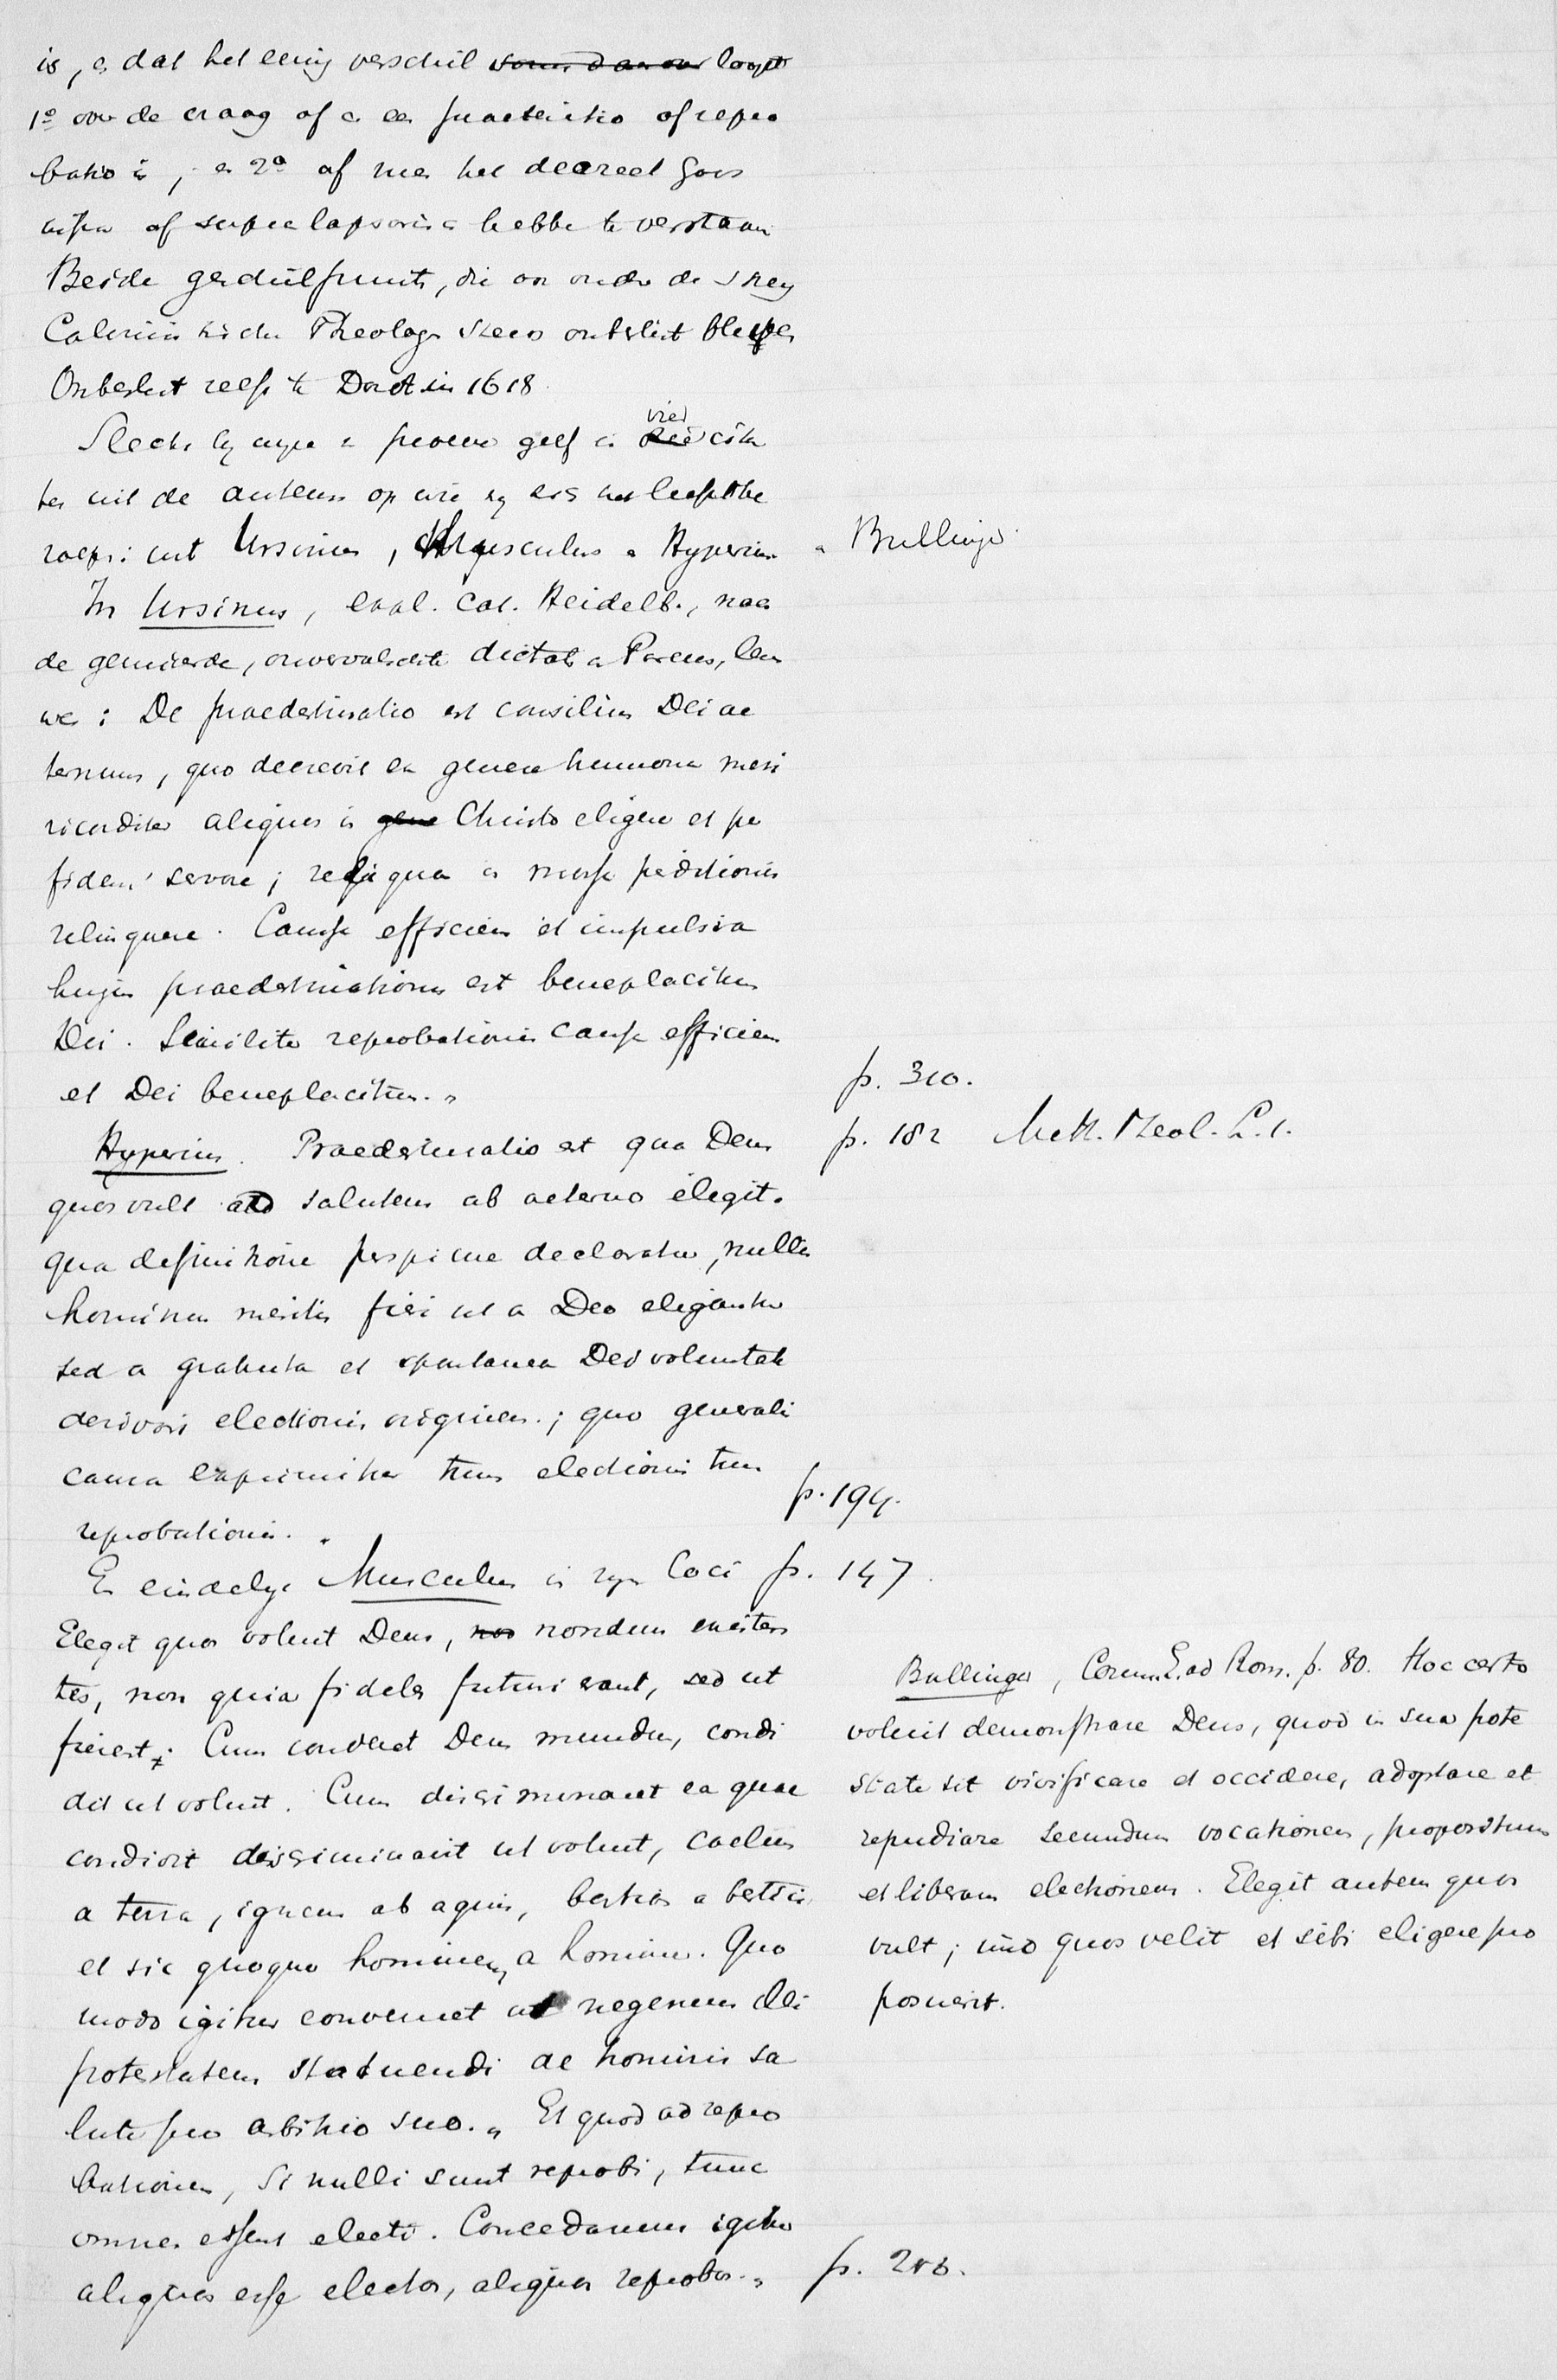 is, en dat het eenig verschil loopt
1o over de vraag of er een praeteritio of repro
batio is, en 2o of men het decreet Gods
infra of supralapsarisch hebbe te verstaan
Beide geschilpunten, die ook onder de streng
Calvinistische Theologen steeds onbeslist bleven
Onbeslist zelfs te Dordt in 1618.
Slechts by wyze van proeve geef ik vier cita
ten uit de auteurs op wie zy zich het liefst be
roepen: uit Ursinus, Musculus en Hyperius en Bullinger
In Ursinus, expl. Cat. Heidelb., naar
de gezuiverde, onvervalschte dictaten Pareus, lezen
we: De praedestinatio est consilium Dei ae
ternum, quo decrevit ex genere humano miseri
corditer aliquos in Christo eligere et per
fidem servare; reliquos in massa perditionis
relinquere. Causa efficiens et impulsiva
hujus praedestinationis est beneplacitum
Dei. Similiter reprobationis causa efficiens
est Dei beneplacitum. "
p. 310.
Hyperius. Praedestinatio est qua Deus
p. 182 Meth. Theol. L. 1.
quos vult ad salutem ab aeterno elegit.
qua definitione perspicue declaratur, nullis
hominum meritis fieri ut a Deo eligantur
sed a gratuita et spontanea Dei voluntate
derivari electionis originem.; quo generali
causa exprimitur tum electionis tum
reprobationis. "
p. 194.
En eindelyk Musculus in zyn Loci p. 147.
Elegit quos voluit Deus, nondum existen
tes, non quia fideles futuri erant, sed ut
fierent. Cum conderet Deus mundum, condi
dit ut voluit. Cum discriminaret ea quae
condidit discriminavit ut voluit, caelum
a terra, ignem ab aquis, bestias a bestiis
et sic quoque hominem a homine. Quo
modo igitur conveniet ut negemus Dei
potestatem statuendi de hominis sa
lute pro arbitrio suo. " Et quod ad repro
bationem, Si nulli sunt reprobi, tunc
omnes essent electi. Concedamus igitur
aliquos esse electos, aliquos reprobos. "
Bullinger, Comm. E. ad Rom. p. 80. Hoc certo
voluit demonstrare Deus, quod in sua pote
state sit vivificare et occidere, adoptare et
repudiare secundum vocationem, propositum
et liberam electionem. Elegit autem quos
vult; imo quos velit et sibi eligere pro
posuerit.